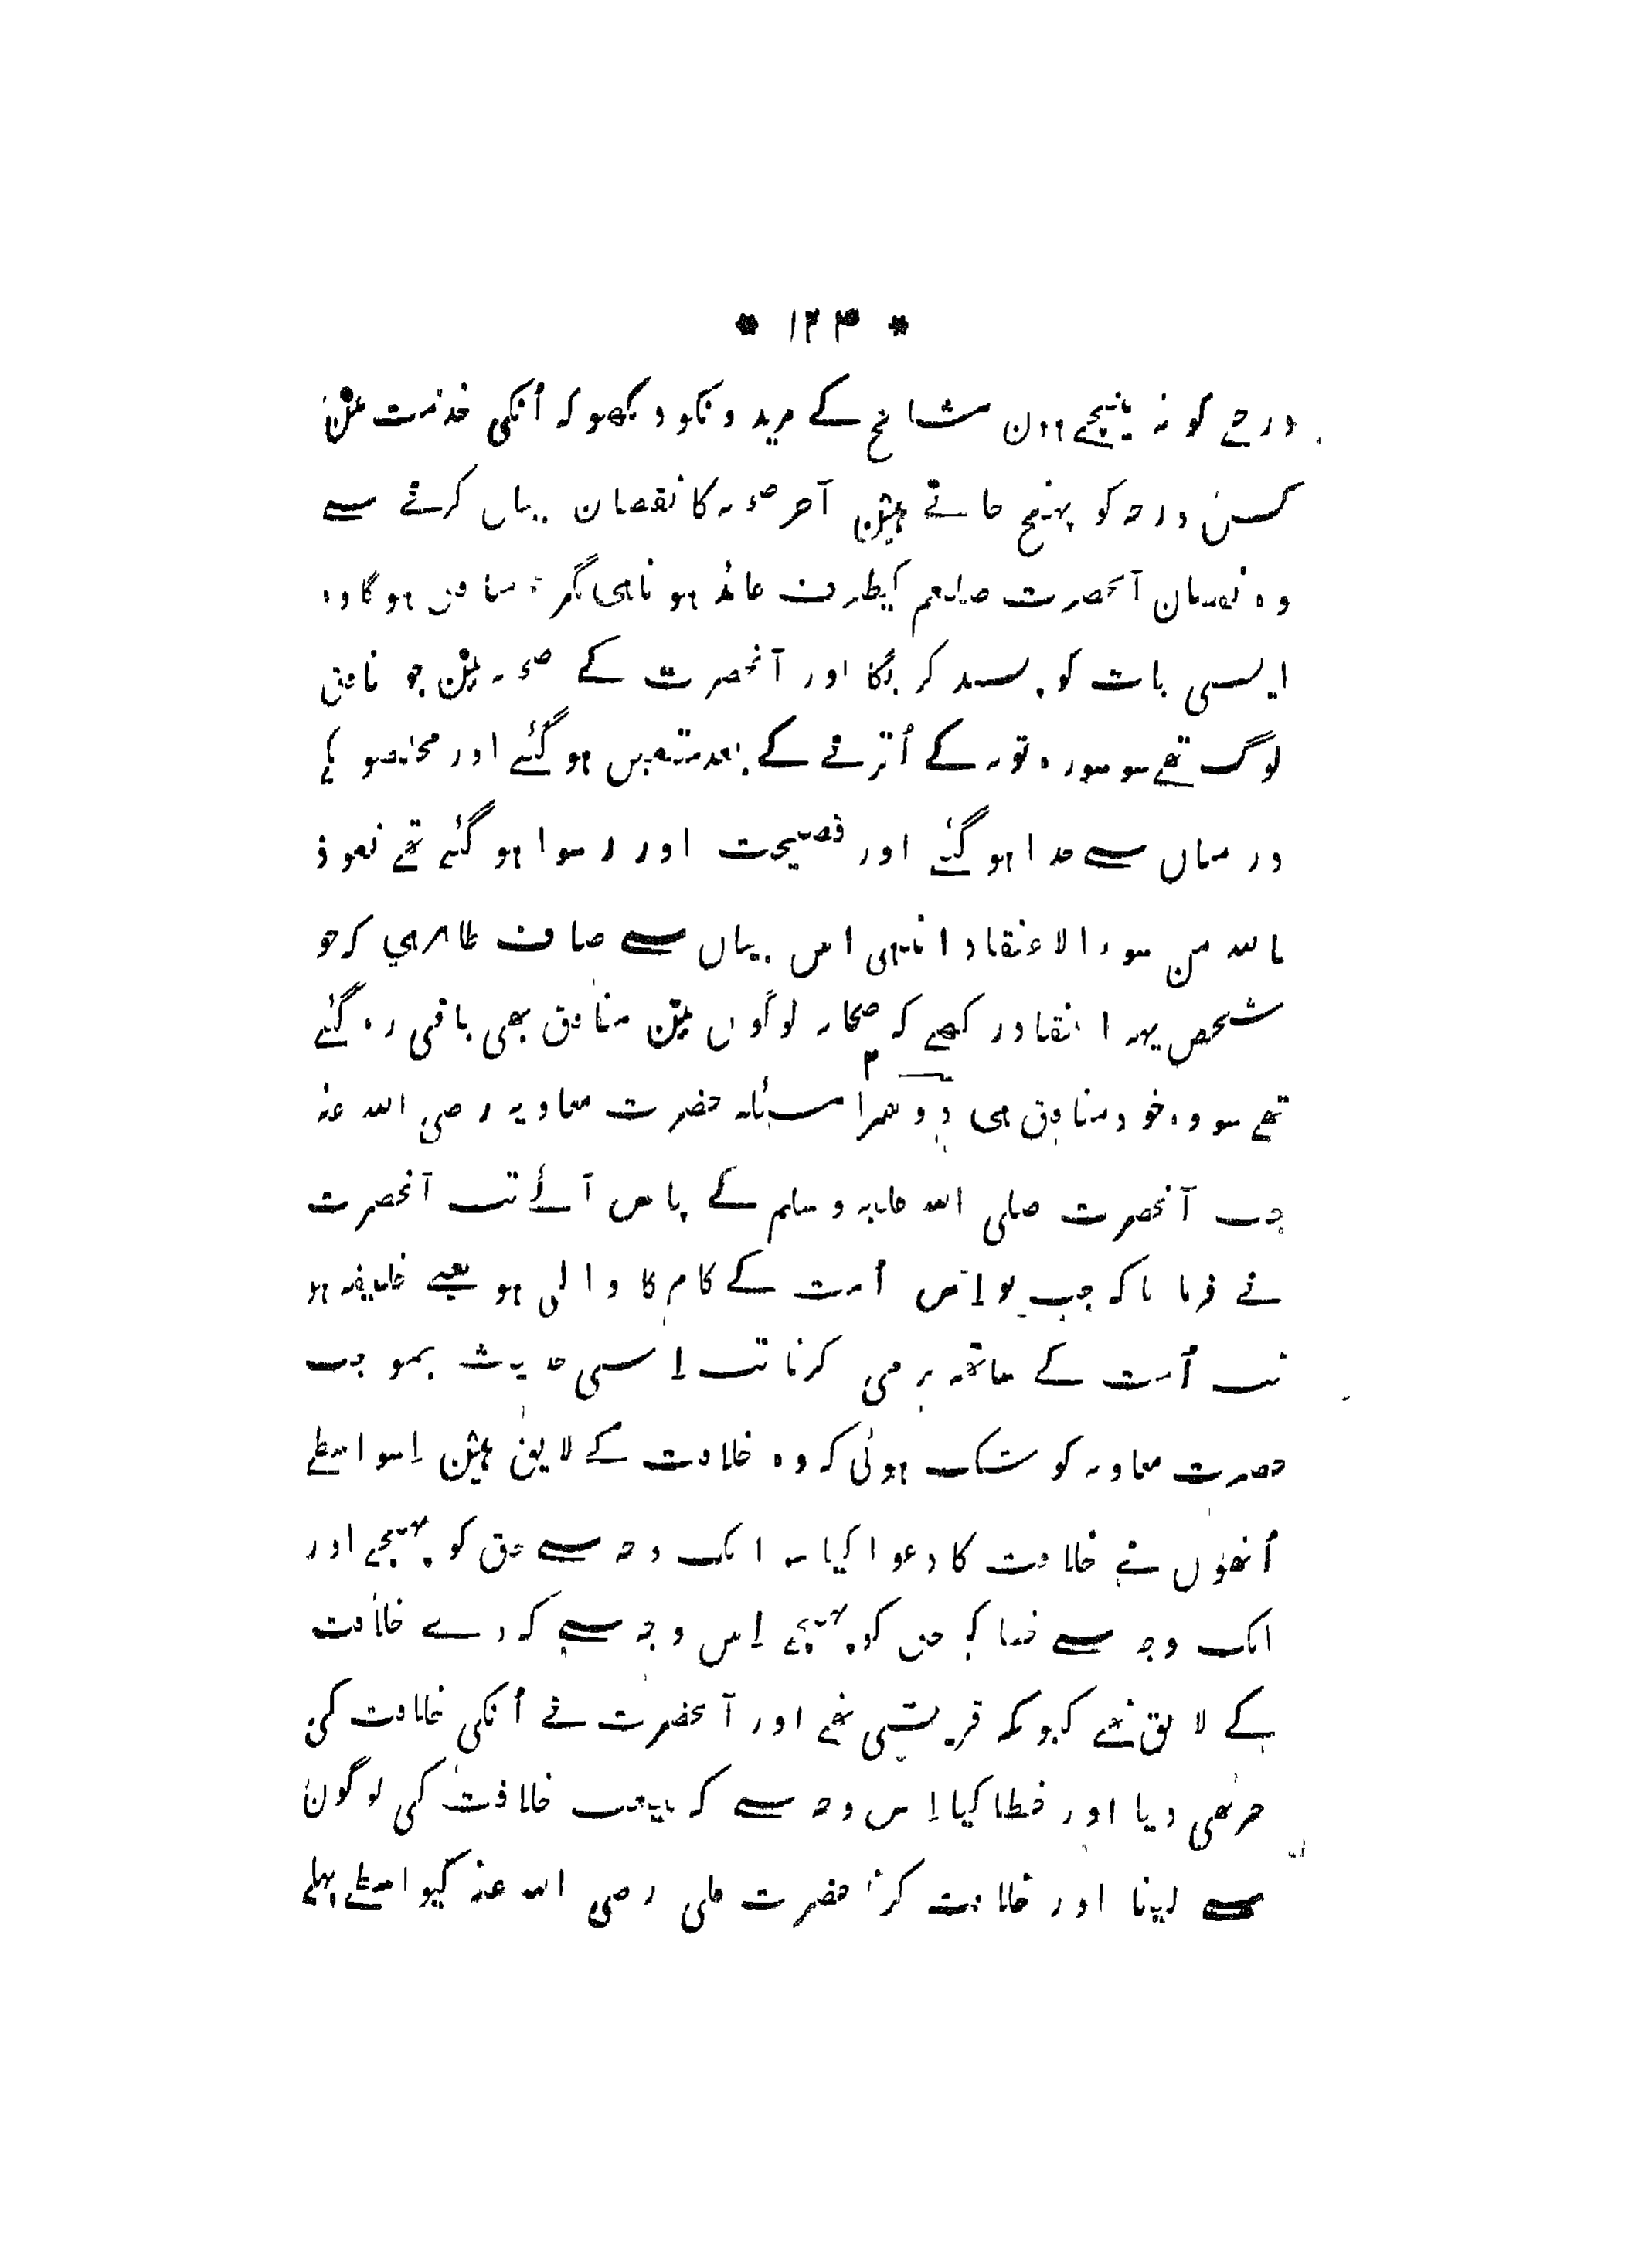 * ۱۲۳ *
درجے کو نہ پہنچے ہون مشایخ کے مریدونکو دیکھو کہ اُنکی خدمت مین
کس درجہ کو پہنچ جاتے ہین آخر صحبت کا نقصان بیاں کرنے سے
وہ نقصان آنحضرت صلعم کیطرف عائد ہوتا ہی مگر جو منافق ہوگا وہ
ایسی بات کو پسند کریگا اور آنحضرت کے صحبت مین جو منافق
لوگ تھے سو سورہ توبہ کے اُترنے کے بعد متعین ہوگئے اور مخلصو نکے
درمیاں سے جدا ہو گئے اور فضیحت اور رسوا ہو گئے تھے نعوذ
باللہ من سوء الاعتقاد انتہی اس بیاں سے صاف ظاہر ہی کہ جو
شخص یہہ اعتقاد رکھے کہ صحابہ لوگوں مین منافق بھی باقی رہ گئے
تھے سو وہ خود منافق ہی دوسرا مسئلہ حضرت معاویہ رضی اللہ عنہ
جب آنحضرت صلی اللہ علیہ و سلم کے پاس آئے تب آنحضرت
نے فرمایا کہ جب تو اِس اُمت کے کام کا والی ہو یعنے خلیفہ ہو
تب اُمت کے ساتھہ نرمی کرنا تب اِسی حدیث بموجب
حضرت معاویہ کو شک ہوئی کہ وہ خلافت کے لایق ہین اِسواسطے
اُنھوں نے خلافت کا دعوا کیا یہ ایک وجہ سے حق کو پہنچے اور
ایک وجہ سے خطا کیا حق کو پہنچے اِس وجہ سے کہ وے خلافت
کے لایق تھے کیونکہ قریشی تھے اور آنحضرت نے اُنکی خلافت کی
خبر بھی دیا اور خطا کیا اِس وجہ سے کہ بیعت خلافت کی لوگون
سے لینا اور خلافت کرنا حضرت علی رضی اللہ عنہ کیواسطے پہلے